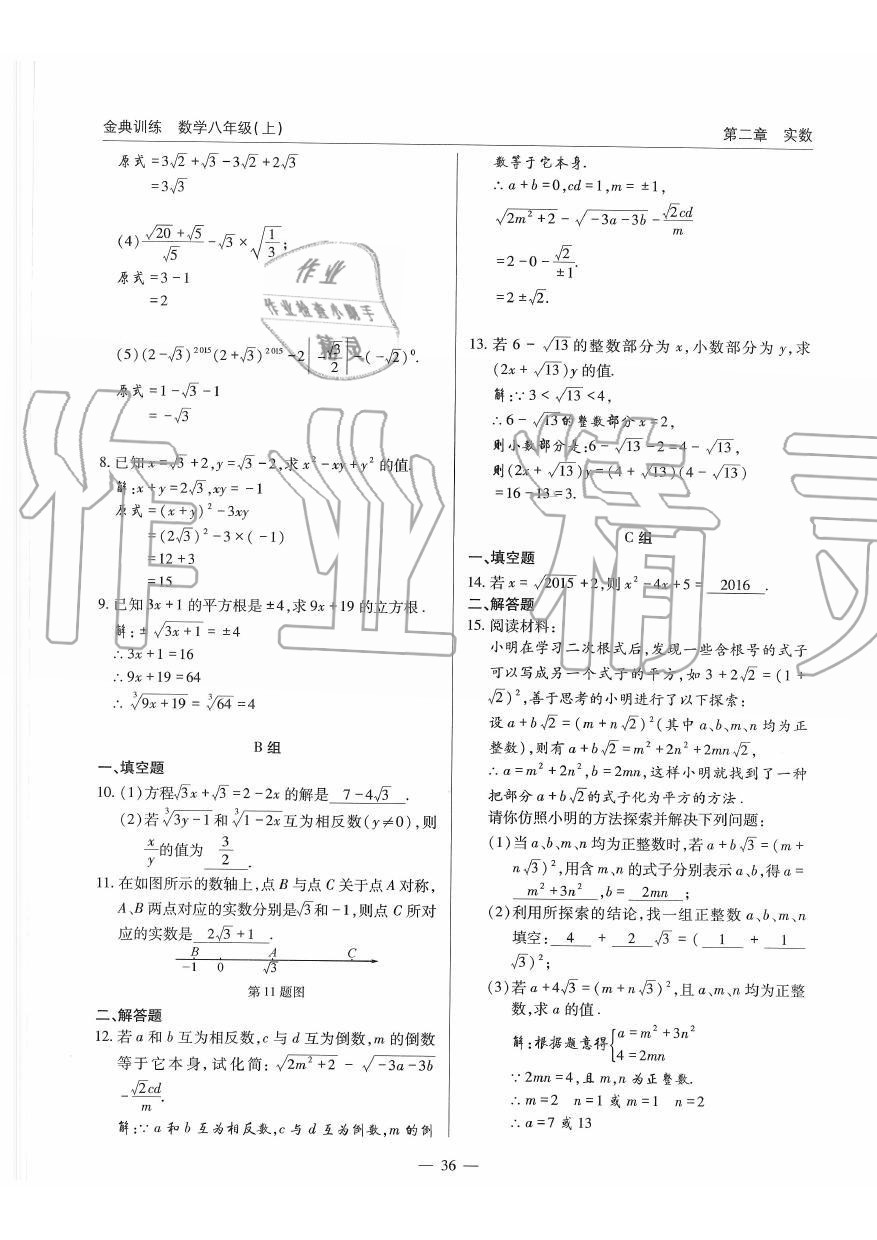 金典训练 数学八年级(上)
第二章 实数
原式=3√2+√3-3√2+2√3
=3√3
(4) (√20+√5)/√5-√3×√(1/3);
原式=3-1
=2
(5)(2-√3)²⁰¹⁵(2+√3)²⁰¹⁵-2|-√3/2|-(-√2)⁰.
原式=1-√3-1
=-√3
8. 已知x=√3+2,y=√3-2,求x²-xy+y²的值.
解:x+y=2√3,xy=-1
原式=(x+y)²-3xy
=(2√3)²-3×(-1)
=12+3
=15
9. 已知3x+1的平方根是±4,求9x+19的立方根.
解:±√(3x+1)=±4
∴3x+1=16
∴9x+19=64
∴∛(9x+19)=∛64=4
B组
一、填空题
10. (1)方程√3x+√3=2-2x的解是 7-4√3 .
(2)若∛(3y-1)和∛(1-2x)互为相反数(y≠0),则
x/y的值为 3/2 .
11. 在如图所示的数轴上,点B与点C关于点A对称,
A、B两点对应的实数分别是√3和-1,则点C所对
应的实数是 2√3+1 .
B A C
-1 0 √3
第11题图
二、解答题
12. 若a和b互为相反数,c与d互为倒数,m的倒数
等于它本身,试化简:√(2m²+2)-√(-3a-3b)
-√2cd/m.
解:∵a和b互为相反数,c与d互为倒数,m的倒
数等于它本身.
∴a+b=0,cd=1,m=±1,
√(2m²+2)-√(-3a-3b)-√2cd/m
=2-0-√2/±1.
=2±√2.
13. 若6-√13的整数部分为x,小数部分为y,求
(2x+√13)y的值.
解:∵3<√13<4,
∴6-√13的整数部分x=2,
则小数部分是:6-√13-2=4-√13,
则(2x+√13)y=(4+√13)(4-√13)
=16-13=3.
C组
一、填空题
14. 若x=√2015+2,则x²-4x+5= 2016 .
二、解答题
15. 阅读材料:
小明在学习二次根式后,发现一些含根号的式子
可以写成另一个式子的平方,如3+2√2=(1+
√2)²,善于思考的小明进行了以下探索:
设a+b√2=(m+n√2)²(其中a、b、m、n均为正
整数),则有a+b√2=m²+2n²+2mn√2,
∴a=m²+2n²,b=2mn,这样小明就找到了一种
把部分a+b√2的式子化为平方的方法.
请你仿照小明的方法探索并解决下列问题:
(1)当a、b、m、n均为正整数时,若a+b√3=(m+
n√3)²,用含m、n的式子分别表示a、b,得a=
m²+3n² ,b= 2mn ;
(2)利用所探索的结论,找一组正整数a、b、m、n
填空: 4 + 2 √3=( 1 + 1
√3)²;
(3)若a+4√3=(m+n√3)²,且a、m、n均为正整
数,求a的值.
解:根据题意得{a=m²+3n²
4=2mn
∵2mn=4,且m,n为正整数.
∴m=2 n=1或m=1 n=2
∴a=7或13
— 36 —
作业
作业检查小助手
精灵
作业精灵